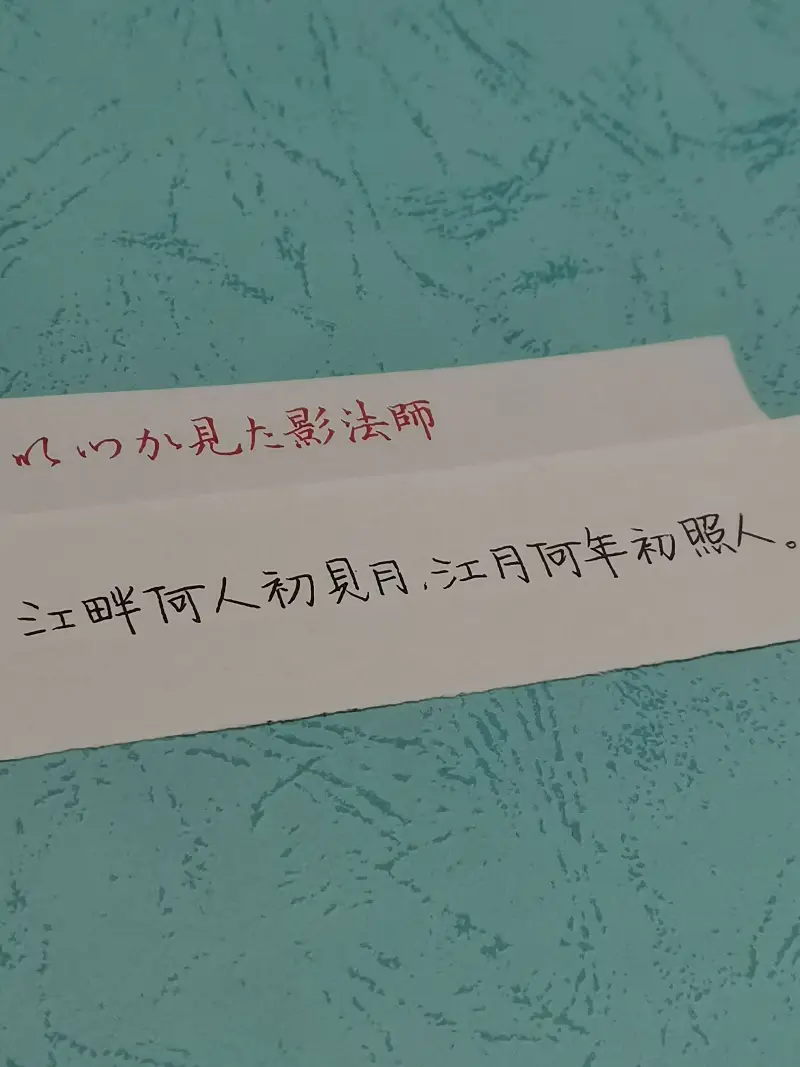 いつか見た影法師
江畔何人初見月,江月何年初照人。